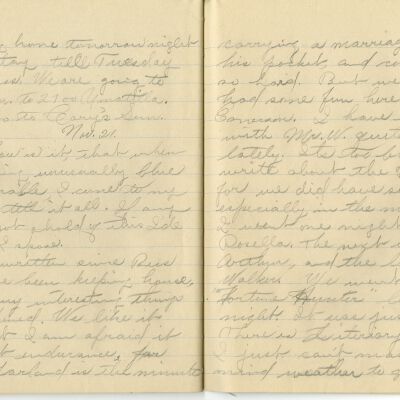 home tomorrow night
stay till Tuesday
We are going to
to 2100 Umatilla.
to Cary's Sun.
Nov. 21.
is it, that when
unusually blue
I come to my
tell it all. If any
get ahold of this I'd
I spose.
written since Russ
been keeping house.
interesting things
We like it
I am afraid it
endurance, for
Garland is the minute
carrying a marriage
his pocket, and
so hard. But we
had some fun here
Cameron. I have
with Mr. W. quite
lately. It's too b
write about the
for we did have so
especially in the m
I went one night
Rosella. The next w
Arthur, and the
Walker. We went
"Fortune Hunter"
night. It was jus
There is Literary
I just can't mas
mind weather to g